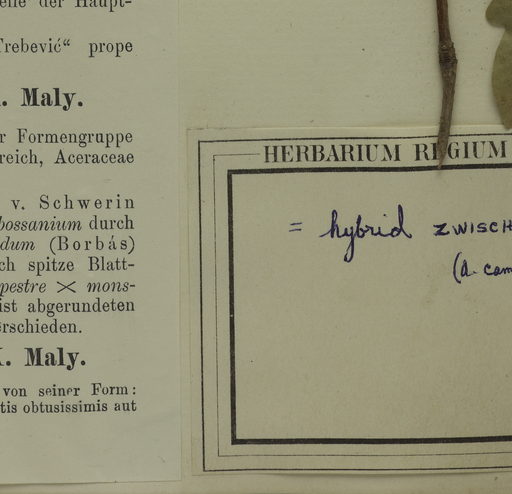 elle der Haupt-
Trebević“ prope
Maly.
r Formengruppe
reich, Aceraceae
v. Schwerin
bossanium durch
dum (Borbás)
ch spitze Blatt-
pestre × mons-
ist abgerundeten
erschieden.
K. Maly.
von seiner Form:
tis obtusissimis aut
HERBARIUM REGIUM
= hybrid ZWISCH
(A. cam